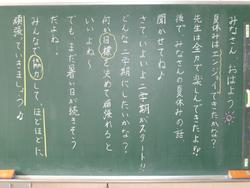 みなさん おはよう
夏休みはエンジョイできたかな?
先生は全力で楽しんできたよ!!
後で、みなさんの夏休みの話
聞かせてね♪
さて、いよいよ二学期がスタート!!
どんな二学期にしたいかな?
何か目標を決めて頑張れると
いいよね〜
でも、まだ暑い日が続きそう
だよね。
みんなで協力して、ほどほどに、
頑張っていきましょう♪